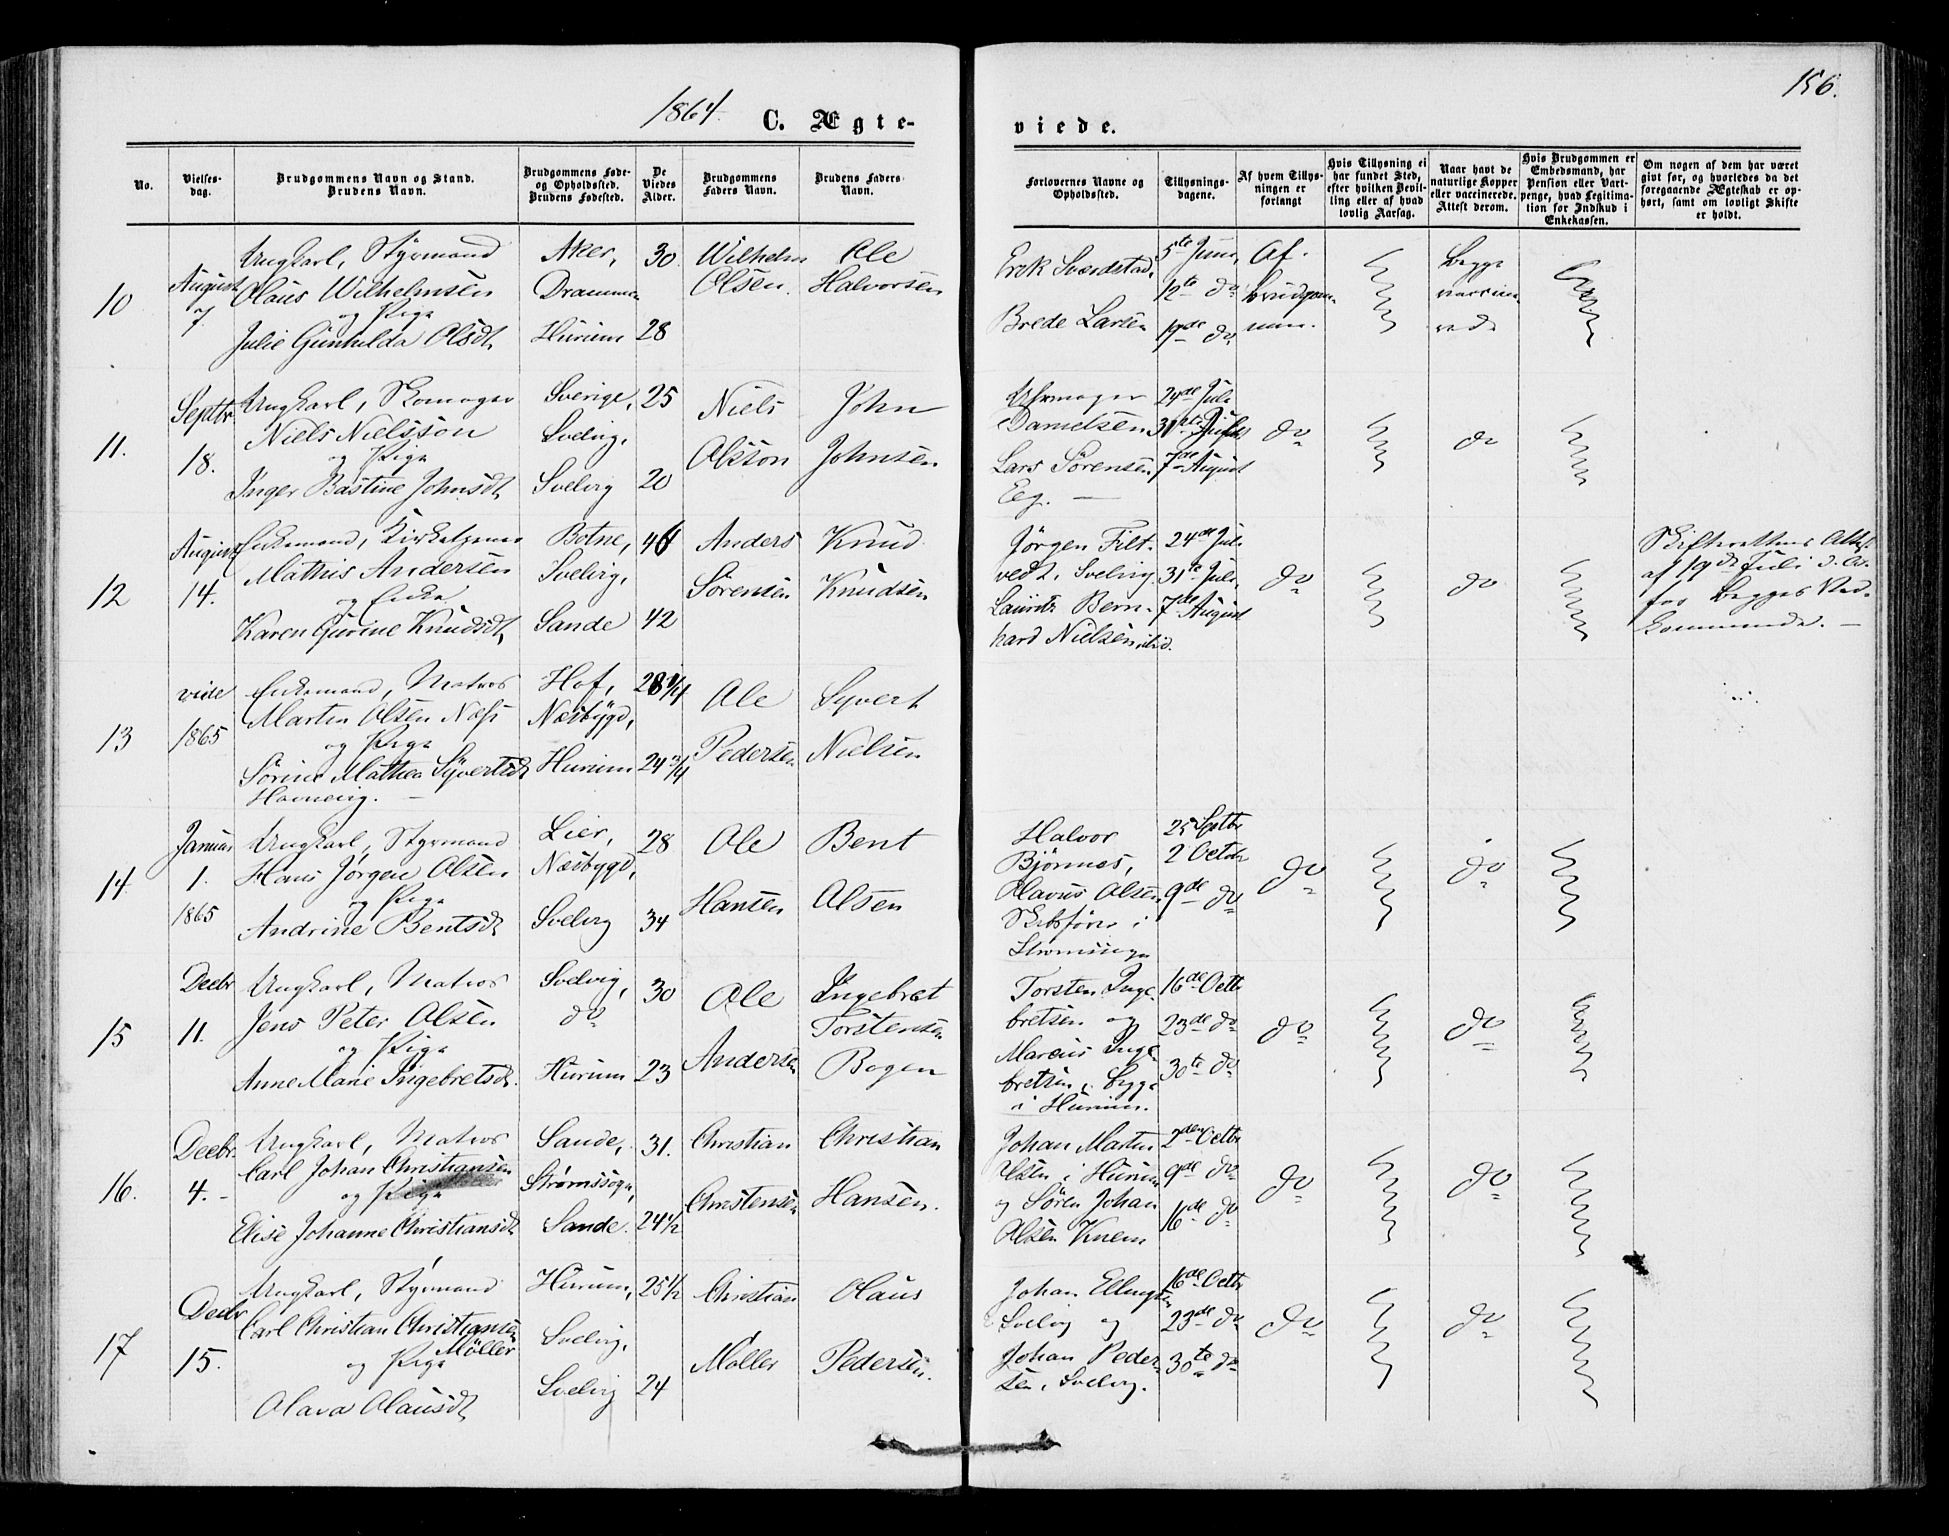 1864.
C. Ægte-
viede.
156.
No.
Vielses-
dag.
Brudgommens Navn og Stand.
Brudens Navn.
Brudgommens Føde-
og Opholdssted.
Brudens Fødested.
De
Viedes
Alder.
Brudgommens
Faders Navn.
Brudens Faders
Navn.
Forlovernes Navne og
Opholdssted.
Tillysnings-
dagene.
Af hvem Tillys-
ningen er
forlangt
Hvis Tillysning ei
har fundet Sted,
efter hvilken Bevil-
ling eller af hvad
lovlig Aarsag.
Naar havt de
naturlige Kopper
eller vaccinerede.
Attest derom.
Hvis Brudgommen er
Embedsmand, har
Pension eller Vart-
penge, hvad Legitima-
tion for Indskud i
Enkekassen.
Om nogen af dem har været
gift før, og hvorledes da det
foregaaende Ægteskab er op-
hørt, samt om lovligt Skifte
er holdt.
10
August
7.
Ungkarl, Styrmand
Olaus Wilhelmsen
og Pige
Julie Gunhilda Olsdt.
Aker,
Drammen
Hurum
30.
28
Wilhelm
Olsen.
Ole
Halvorsen
Erik Sværdstad,
Brede Larsen
5te Juni,
12te do
19de do
Af
brudgom-
men.
begge
vaccine-
rede
11.
Septbr.
18.
Ungkarl, Skomager
Niels Nielsson
og Pige
Inger Bastine Johnsdt.
Sverige,
Svelvig,
Svelvig
25
20
Niels
Olsson
John
Johnsen
Uhrmager
Danielsen
Lars Sørensen
Eeg. —
24de Juli
31te Juli
7de August
do
do
12
August
14.
Enkemand, Kirketjener
Mathis Andersen
og Enke
Karen Gurine Knudsdt,
Botne,
Svelvig,
Sande
46
42
Anders
Sørensen
Knud
Knudsen
Jørgen Filt-
vedt, Svelvig
Lauritz Bern-
hard Nielsen ibid.
24de Juli
31te Juli,
7de August
do
do
Skifterettens Attest
af 19de Juli d. A.
for begges Ved-
kommende. —
13
vide
1865
Enkemand, Matros
Martin Olsen Næss
og Pige
Sørine Mathea Syvertsdt
Homevig. —
Hof,
Næsbygd,
Hurum
28 1/4
24 3/4
Ole
Pedersen
Syvert
Nielsen
14
Januar
1.
1865
Ungkarl, Styrmand
Hans Jørgen Olsen
og Pige
Andrine Bentsdt
Lier,
Næsbygd,
Svelvig
28
34
Ole
Hansen
Bent
Olsen
Halvor
Bjørnnes,
Olavus Olsen
Skibsfører i
25 Septbr
2 Octbr
9de do
do
do
15
Decbr
11.
Ungkarl, Matros
Jens Peter Olsen
og Pige
Anne Marie Ingebretsdt.
Svelvig,
do
Hurum
30
23
Ole
Andersen
Ingebret
Torstensen
Bogen
Torsten Inge-
bretsen og
Marcus Inge-
bretsen, begge
i Hurum.
16de Octbr
23de do
30te do
do
do
16.
Decbr.
4. -
Ungkarl, Matros
Carl Johan Christiansen
og Pige
Elise Johanne Christiansdt
Sande,
Strømssogn,
Sande.
31.
24 1/2
Christian
Christensen
Christian
Hansen.
Johan Martin
Olsen i Hurum
og Søren Johan
Olsen Knem
2den Octbr
9de do
16de do
do
do
17
Decbr
15.
Ungkarl, Styrmand
Carl Christian Christiansen
Möller
og Pige
Olava Olausdt
Hurum,
Svelvig,
Svelvig
25 1/2
24
Christian
Møller
Olaus
Pedersen.
Johan Ellingsen
Svelvig og
Johan Peder-
sen, Svelvig.
16de Octbr
23de do
30te do
do
do